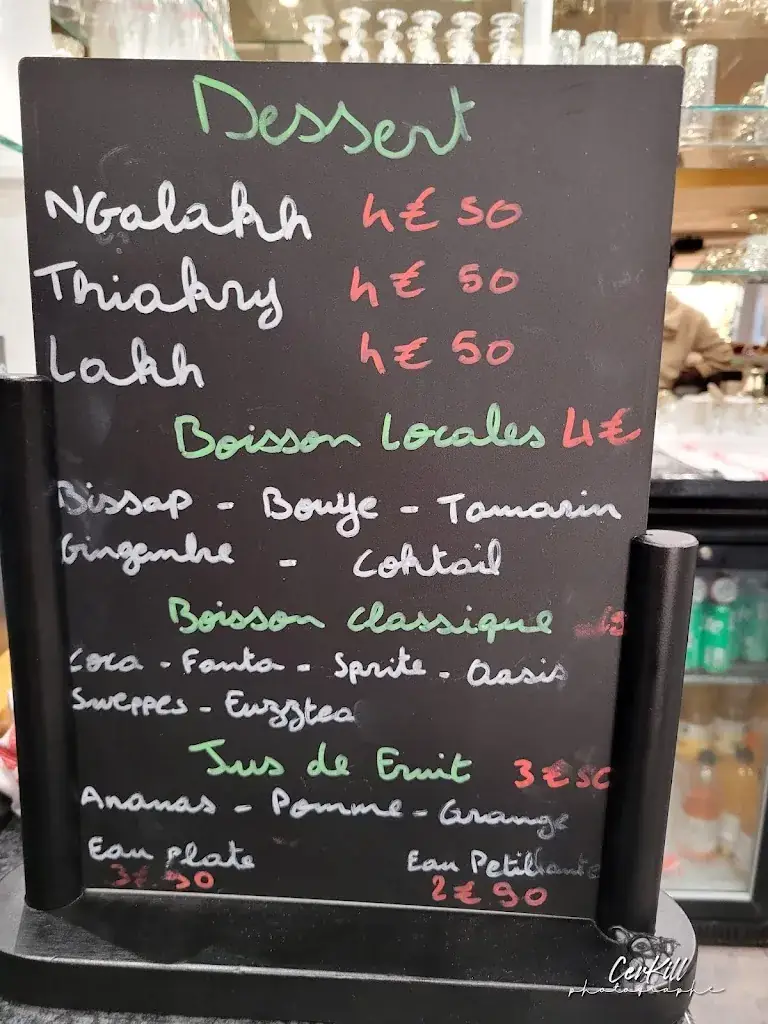 Dessert
NGalakh 4€ 50
Thiakry 4€ 50
Lakh 4€ 50
Boisson Locales 4€
Bissap - Bouye - Tamarin
Gingembre - Coktail
Boisson classique
Coca - Fanta - Sprite - Oasis
Sweppes - Fuzztea
Jus de Fruit 3€50
Ananas - Pomme - Orange
Eau plate Eau Petillante
3€ 50 2€ 90
CerKill
photographe